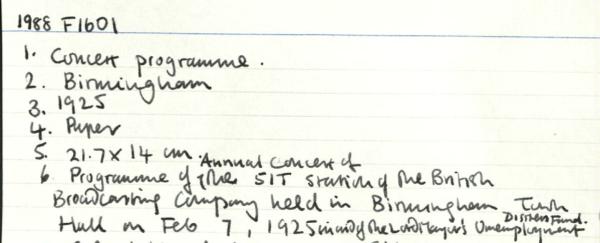 1988 F1601
1. Concert programme.
2. Birmingham
3. 1925
4. Paper
5. 21.7 x 14 cm. Annual Concert of
6. Programme of the 5IT Station of the British
Broadcasting Company held in Birmingham Town
Hall on Feb 7, 1925 in aid of the Lord Mayor's Unemployment
Distress Fund.